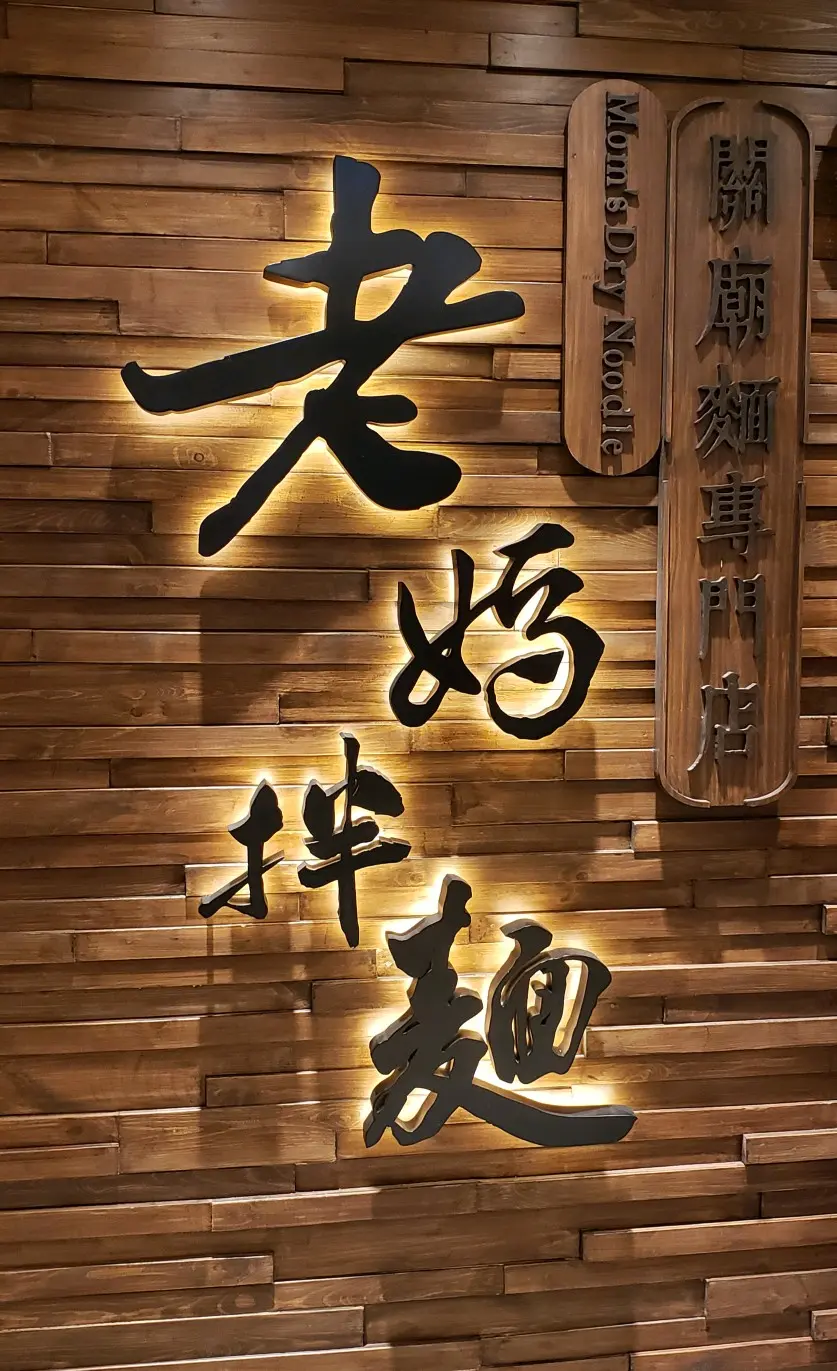 關廟麵專門店
Mom's Dry Noodle
老媽拌麵